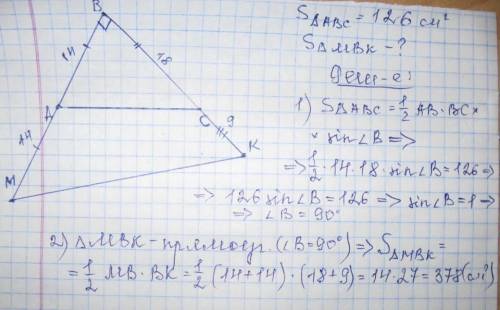 В
14
18
А
С
9
14
К
М
S△ABC = 126 см²
S△MBK - ?
Реш-е:
1) S△ABC = 1/2 AB·BC×
× sin∠B =>
=> 1/2·14·18·sin∠B = 126 =>
=> 126 sin∠B = 126 => sin∠B = 1 =>
=> ∠B = 90°
2) △MBK - прямоуг. (∠B = 90°) => S△MBK =
= 1/2 MB·BK = 1/2 (14+14)·(18+9) = 14·27 = 378 (см²)